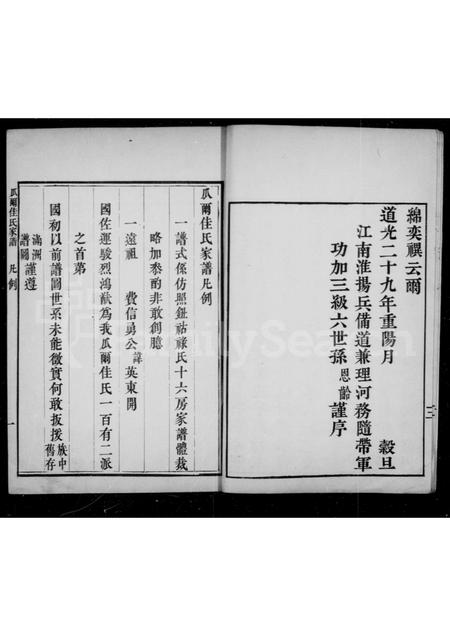 綿奕禩云爾
道光二十九年重陽月 穀旦
江南淮揚兵備道兼理河務隨帶軍
功加三級六世孫恩齡謹序
三
瓜爾佳氏家譜凡例
一譜式係仿照鈕祜祿氏十六房家譜體裁
略加黍酌非敢創臆
一遠祖 費信勇公諱英東開
國佐運駿烈鴻猷為我瓜爾佳氏一百有二派
之首第
國初以前譜圖世系未能徵實何敢扳援族中舊存
滿洲譜圖謹遵
瓜爾佳氏家譜 凡例 一
FamilySearch